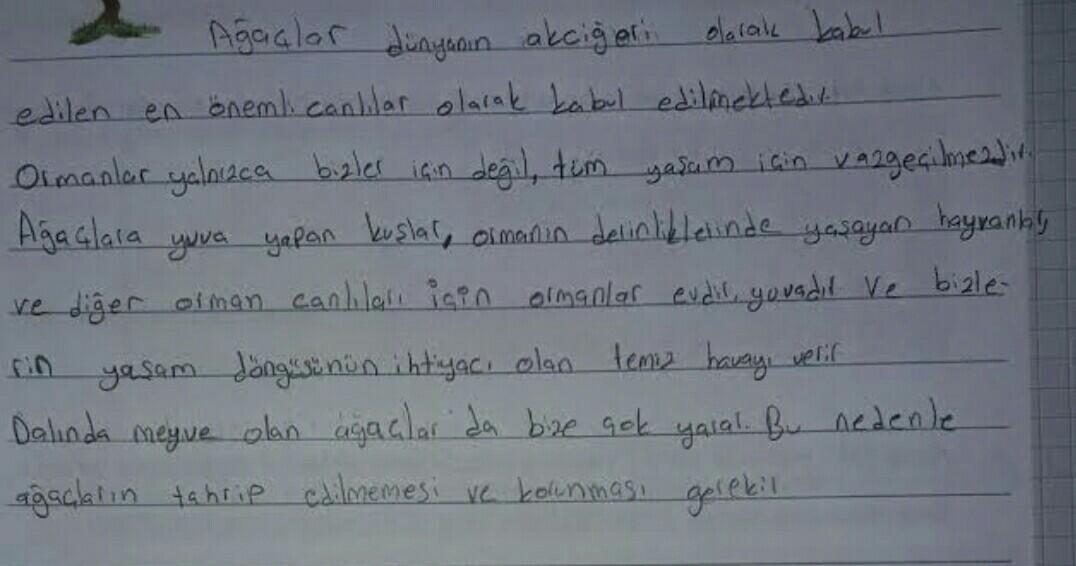 Ağaçlar dünyanın akciğeri olarak kabul
edilen en önemli canlılar olarak kabul edilmektedir.
Ormanlar yalnızca bizler için değil, tüm yaşam için vazgeçilmezdir.
Ağaçlara yuva yapan kuslar, ormanın derinliklerinde yaşayan
ve diğer orman canlıları için ormanlar evdir, yuvadır ve bizle-
rin yaşam döngüsünün ihtiyacı olan temiz havayı verir
Dalında meyve olan ağaçlar da bize çok yarar. Bu nedenle
ağaçların tahrip edilmemesi ve korunması gerekir